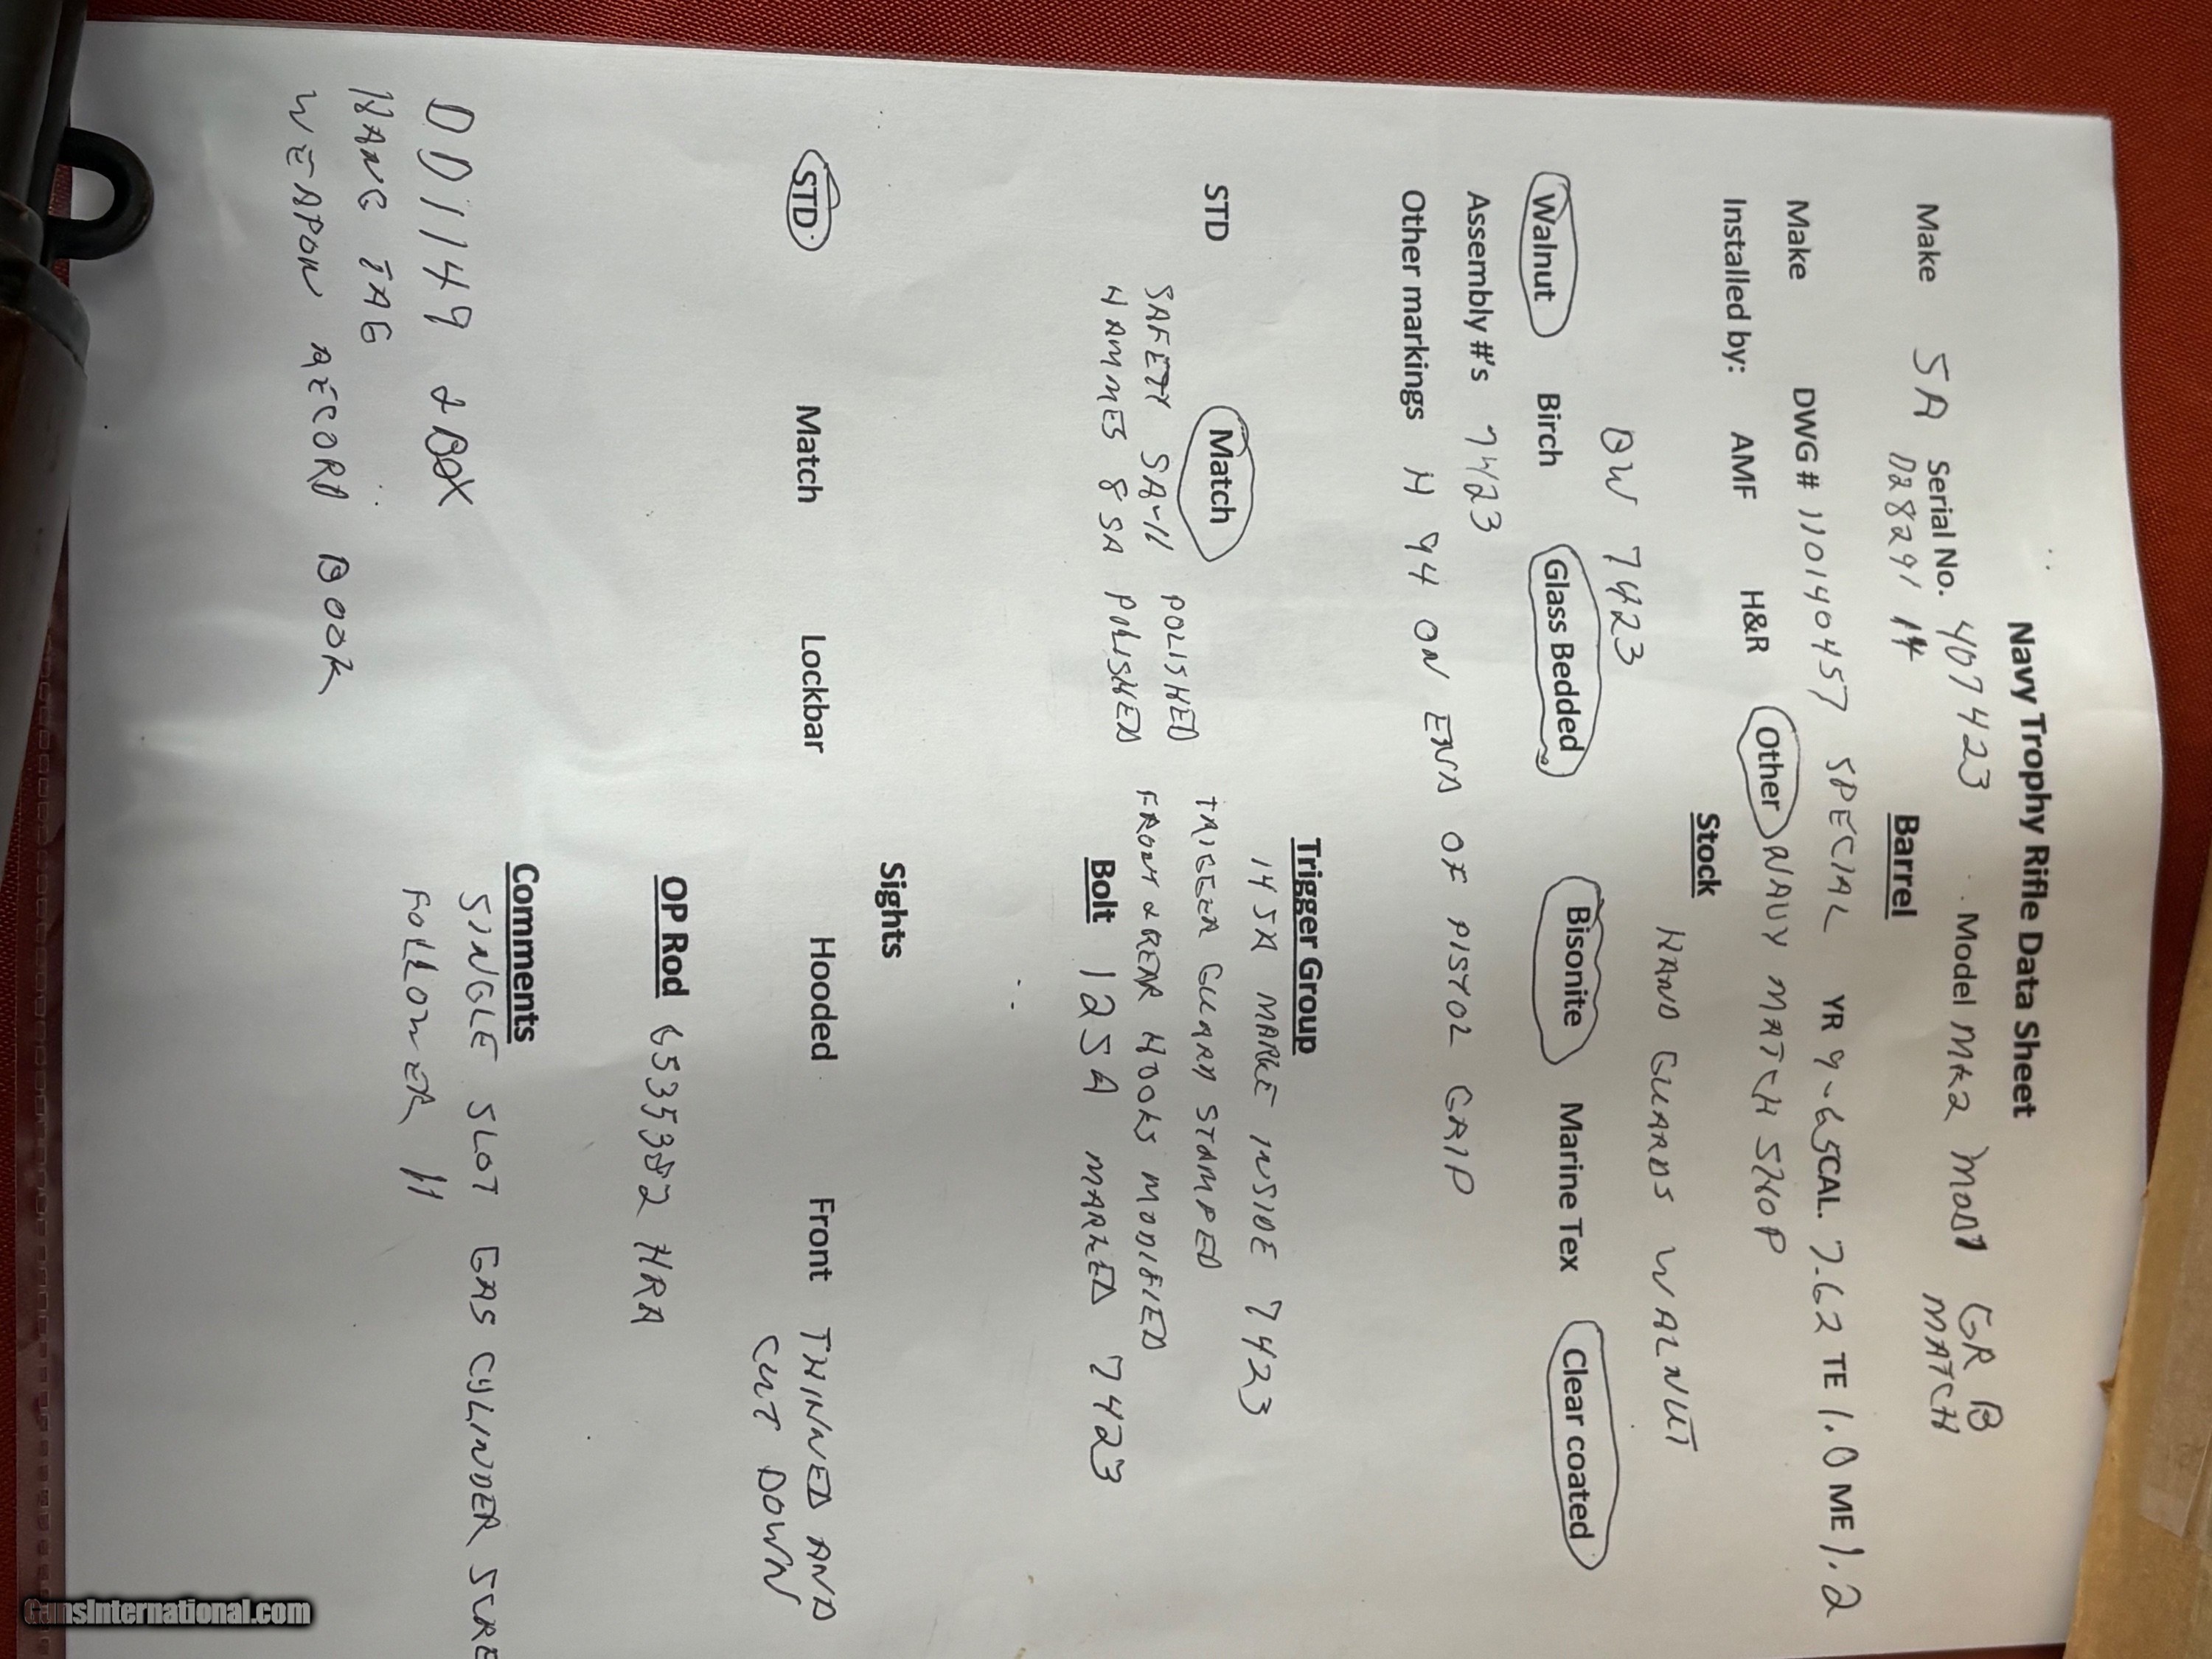 Navy Trophy Rifle Data Sheet
Make SA Serial No. 407423 Model MK2 MOD1 GR B
D28291 14 MATCH
Barrel
Make DWG# 110140457 SPECIAL YR 9-65 CAL. 7.62 TE 1.0 ME 1.2
Installed by: AMF H&R Other NAVY MATCH SHOP
Stock
BW 7423 HAND GUARDS WALNUT
Walnut Birch Glass Bedded Bisonite Marine Tex Clear coated
Assembly #'s 7423
Other markings N 94 ON END OF PISTOL GRIP
Trigger Group
14 SA MARKE INSIDE 7423
STD Match TRIGGER GUARD STAMPED
SAFETY SA-11 POLISHED FRONT & REAR HOOKS MODIFIED
HAMMES 8 SA POLISHED
Bolt 12SA MARKED 7423
Sights
STD Match Lockbar Hooded Front THINNED AND
CUT DOWN
OP Rod 6535382 HRA
Comments
DD1149 2 BOX SINGLE SLOT GAS CYLINDER SCRE
HANG TAG FOLLOWER 11
WEAPON RECORD BOOK
GunsInternational.com